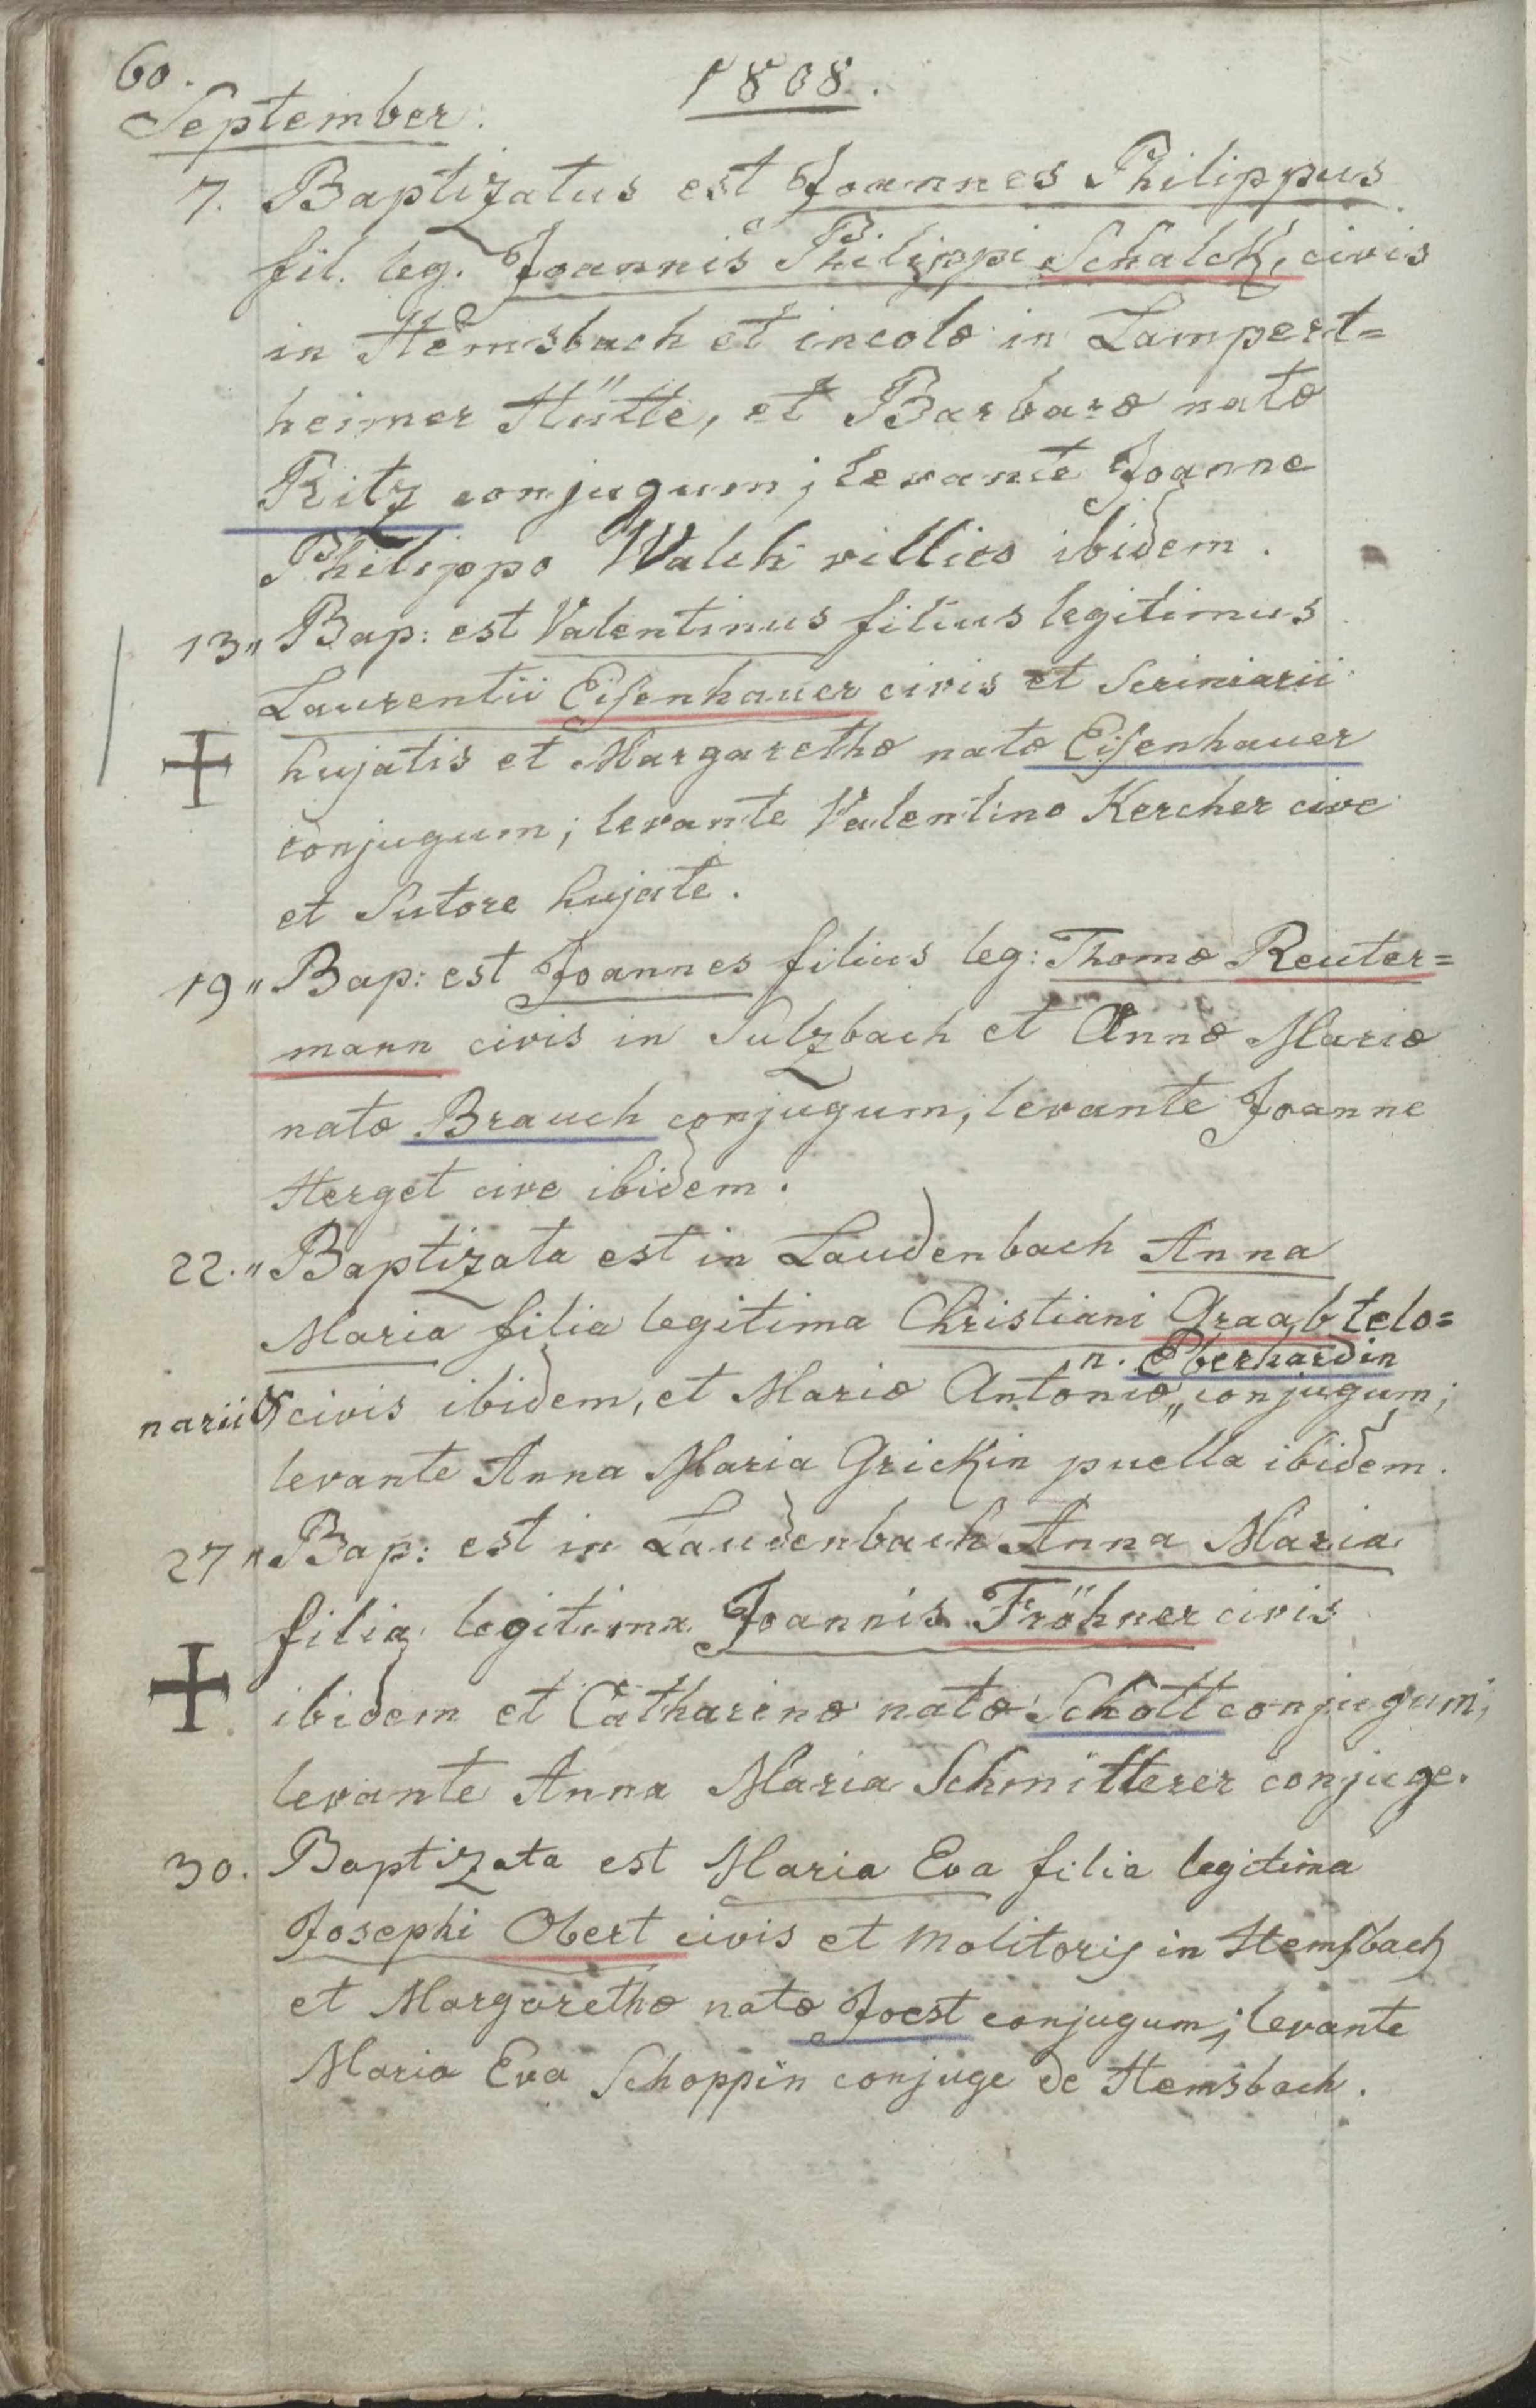 60.
1808.
September.
7. Baptizatus est Joannes Philippus
fil. leg. Joannis Philippi Schalck, civis
in Hemsbach et incolæ in Lampert=
heimer Hütte, et Barbaræ natæ
Ritz conjugum; levante Joanne
Philippo Walch villico ibidem.
13„ Bap: est Valentinus filius legitimus
Laurentii Eisenhauer civis et Scriniarii
hujatis et Margarethæ natæ Eisenhauer
conjugum; levante Valentino Kercher cive
et Sutore hujate.
19„ Bap: est Joannes filius leg: Thomæ Reuter=
mann civis in Sulzbach et Annæ Mariæ
natæ Brauch conjugum, levante Joanne
Herget cive ibidem.
22.„ Baptizata est in Laudenbach Anna
Maria filia legitima Christiani Graab telo=
n. Eberhardin
narii & civis ibidem, et Mariæ Antoniæ„ conjugum;
levante Anna Maria Grickin puella ibidem.
27„ Bap: est in Laudenbach Anna Maria
filia legitima Joannis Fröhner civis
ibidem et Catharinæ natæ Schott conjugum;
levante Anna Maria Schmitterer conjuge.
30. Baptizata est Maria Eva filia legitima
Josephi Obert civis et Molitoris in Hemsbach
et Margarethæ natæ Joest conjugum; levante
Maria Eva Schoppin conjuge de Hemsbach.